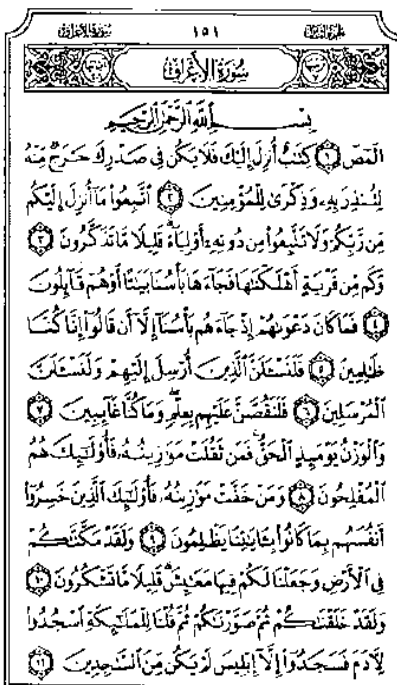 سُورَةُ الْأَعْرَافِ ١٥١
سُورَةُ الْأَعْرَافِ
بِسْمِ اللَّهِ الرَّحْمَنِ الرَّحِيمِ
الٓمٓصٓ ١ كِتَٰبٌ أُنزِلَ إِلَيْكَ فَلَا يَكُن فِى صَدْرِكَ حَرَجٌ مِّنْهُ
لِتُنذِرَ بِهِۦ وَذِكْرَىٰ لِلْمُؤْمِنِينَ ٢ ٱتَّبِعُوا۟ مَآ أُنزِلَ إِلَيْكُم
مِّن رَّبِّكُمْ وَلَا تَتَّبِعُوا۟ مِن دُونِهِۦٓ أَوْلِيَآءَ ۗ قَلِيلًا مَّا تَذَكَّرُونَ ٣
وَكَم مِّن قَرْيَةٍ أَهْلَكْنَٰهَا فَجَآءَهَا بَأْسُنَا بَيَٰتًا أَوْ هُمْ قَآئِلُونَ
٤ فَمَا كَانَ دَعْوَىٰهُمْ إِذْ جَآءَهُم بَأْسُنَآ إِلَّآ أَن قَالُوٓا۟ إِنَّا كُنَّا
ظَٰلِمِينَ ٥ فَلَنَسْـَٔلَنَّ ٱلَّذِينَ أُرْسِلَ إِلَيْهِمْ وَلَنَسْـَٔلَنَّ
ٱلْمُرْسَلِينَ ٦ فَلَنَقُصَّنَّ عَلَيْهِم بِعِلْمٍ ۖ وَمَا كُنَّا غَآئِبِينَ ٧
وَٱلْوَزْنُ يَوْمَئِذٍ ٱلْحَقُّ ۚ فَمَن ثَقُلَتْ مَوَٰزِينُهُۥ فَأُو۟لَٰٓئِكَ هُمُ
ٱلْمُفْلِحُونَ ٨ وَمَنْ خَفَّتْ مَوَٰزِينُهُۥ فَأُو۟لَٰٓئِكَ ٱلَّذِينَ خَسِرُوٓا۟
أَنفُسَهُم بِمَا كَانُوا۟ بِـَٔايَٰتِنَا يَظْلِمُونَ ٩ وَلَقَدْ مَكَّنَّٰكُمْ
فِى ٱلْأَرْضِ وَجَعَلْنَا لَكُمْ فِيهَا مَعَٰيِشَ ۗ قَلِيلًا مَّا تَشْكُرُونَ ١٠
وَلَقَدْ خَلَقْنَٰكُمْ ثُمَّ صَوَّرْنَٰكُمْ ثُمَّ قُلْنَا لِلْمَلَٰٓئِكَةِ ٱسْجُدُوا۟
لِـَٔادَمَ فَسَجَدُوٓا۟ إِلَّآ إِبْلِيسَ لَمْ يَكُن مِّنَ ٱلسَّٰجِدِينَ ١١